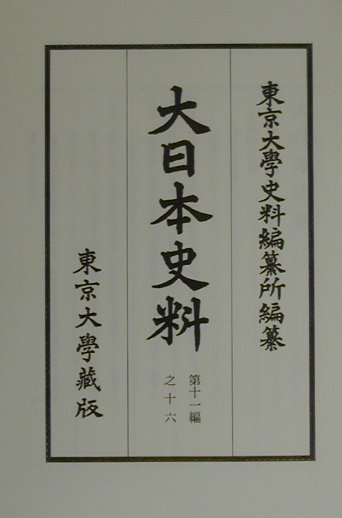 東京大學史料編纂所編纂
大日本史料
第十一編
之十六
東京大學藏版